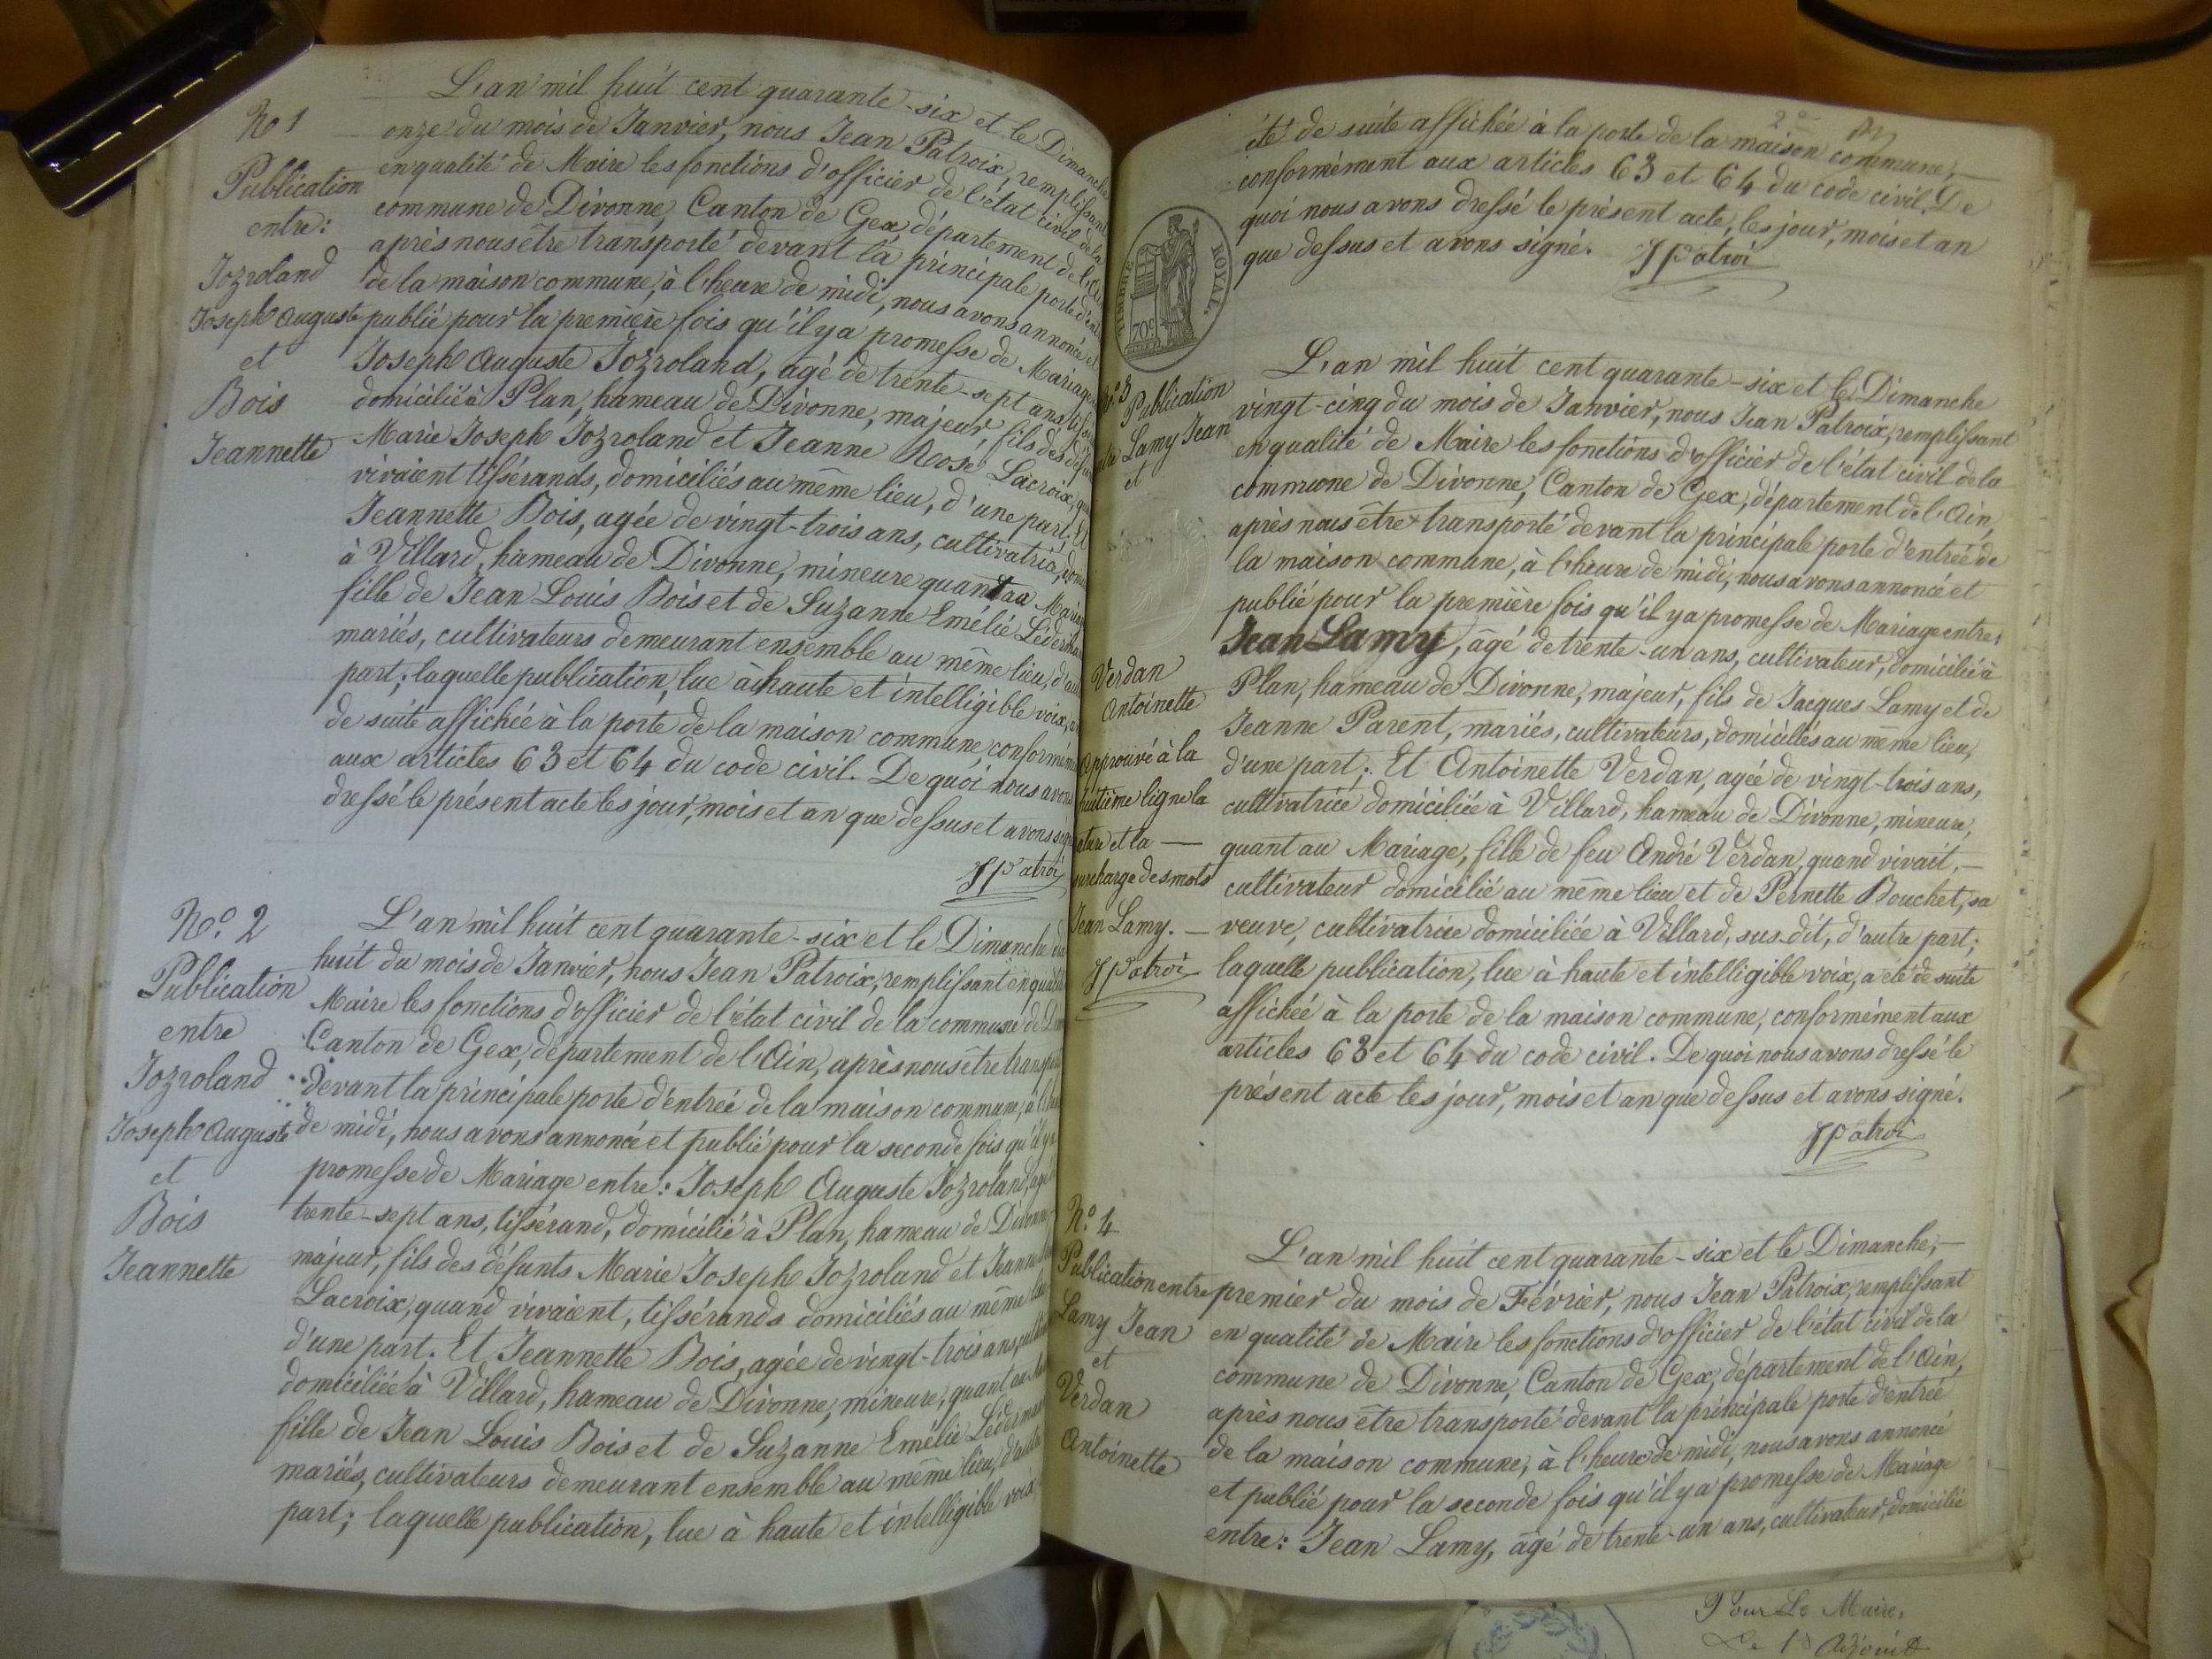 N° 1
Publication
entre:
Jozroland
Joseph Auguste
et
Bois
Jeannette
L'an mil huit cent quarante-six et le Dimanche
onze du mois de Janvier, nous Jean Patroix, remplissant
en qualité de Maire les fonctions d'officier de l'état civil de la
commune de Divonne, Canton de Gex, département de l'Ain
après nous être transporté devant la principale porte d'ent
de la maison commune, à l'heure de midi, nous avons annoncé et
publié pour la première fois qu'il y a promesse de Mariage
Joseph Auguste Jozroland, agé de trente-sept ans, tiss
domicilié à Plan, hameau de Divonne, majeur, fils des défun
Marie Joseph Jozroland et Jeanne Rose Lacroix, qu
vivaient tissérands, domiciliés au même lieu, d'une part. Et
Jeannette Bois, agée de vingt-trois ans, cultivatrice, dom
à Villard, hameau de Divonne, mineure quant au Maria
fille de Jean Louis Bois et de Suzanne Emélie Léderma
mariés, cultivateurs demeurant ensemble au même lieu, d'au
part; laquelle publication, lue à haute et intelligible voix, a
de suite affichée à la porte de la maison commune, conformém
aux articles 63 et 64 du code civil. De quoi nous avons
dressé le présent acte les jour, mois et an que dessus et avons sign
JPatroi
N° 2
Publication
entre
Jozroland
Joseph Auguste
et
Bois
Jeannette
L'an mil huit cent quarante-six et le Dimanche dix
huit du mois de Janvier, nous Jean Patroix, remplissant en qualité
Maire les fonctions d'officier de l'état civil de la commune de Div
Canton de Gex, département de l'Ain, après nous être transpo
devant la principale porte d'entrée de la maison commune, à l'h
de midi, nous avons annoncé et publié pour la seconde fois qu'il y a
promesse de Mariage entre: Joseph Auguste Jozroland, agé
trente-sept ans, tissérand, domicilié à Plan, hameau de Divonne,
majeur, fils des défunts Marie Joseph Jozroland et Jeanne
Lacroix, quand vivaient, tissérands domiciliés au même lieu
d'une part. Et Jeannette Bois, agée de vingt-trois ans, cult
domiciliée à Villard, hameau de Divonne, mineure, quant au Ma
fille de Jean Louis Bois et de Suzanne Emélie Léderman
mariés, cultivateurs demeurant ensemble au même lieu, d'autre
part; laquelle publication, lue à haute et intelligible voix
2e
été de suite affichée à la porte de la maison commune,
conformément aux articles 63 et 64 du code civil. De
quoi nous avons dressé le présent acte, les jour, mois et an
que dessus et avons signé. JPatroi
TIMBRE ROYAL
70c
N° 3
Publication
Lamy Jean
et
Verdan
Antoinette
Approuvé à la
huitième ligne la
rature et la —
surcharge des mots
Jean Lamy. —
JPatroi
L'an mil huit cent quarante-six et le Dimanche
vingt-cinq du mois de Janvier, nous Jean Patroix, remplissant
en qualité de Maire les fonctions d'officier de l'état civil de la
commune de Divonne, Canton de Gex, département de l'Ain,
après nous être transporté devant la principale porte d'entrée de
la maison commune, à l'heure de midi, nous avons annoncé et
publié pour la première fois qu'il y a promesse de Mariage entre:
Jean Lamy, âgé de trente-un ans, cultivateur, domicilié à
Plan, hameau de Divonne, majeur, fils de Jacques Lamy et de
Jeanne Parent, mariés, cultivateurs, domiciliés au même lieu,
d'une part; Et Antoinette Verdan, agée de vingt-trois ans,
cultivatrice domiciliée à Villard, hameau de Divonne, mineure,
quant au Mariage, fille de feu André Verdan, quand vivait, —
cultivateur domicilié au même lieu et de Pernette Bouchet, sa
veuve, cultivatrice domiciliée à Villard, sus-dit, d'autre part;
laquelle publication, lue à haute et intelligible voix, a été de suite
affichée à la porte de la maison commune, conformément aux
articles 63 et 64 du code civil. De quoi nous avons dressé le
présent acte les jour, mois et an que dessus et avons signé.
JPatroi
N° 4
Publication entre
Lamy Jean
et
Verdan
Antoinette
L'an mil huit cent quarante-six et le Dimanche, —
premier du mois de Février, nous Jean Patroix, remplissant
en qualité de Maire les fonctions d'officier de l'état civil de la
commune de Divonne, Canton de Gex, département de l'Ain,
après nous être transporté devant la principale porte d'entrée
de la maison commune, à l'heure de midi, nous avons annoncé
et publié pour la seconde fois qu'il y a promesse de Mariage
entre: Jean Lamy, âgé de trente-un ans, cultivateur, domicilié
Pour Le Maire,
Le 1er Adjoint